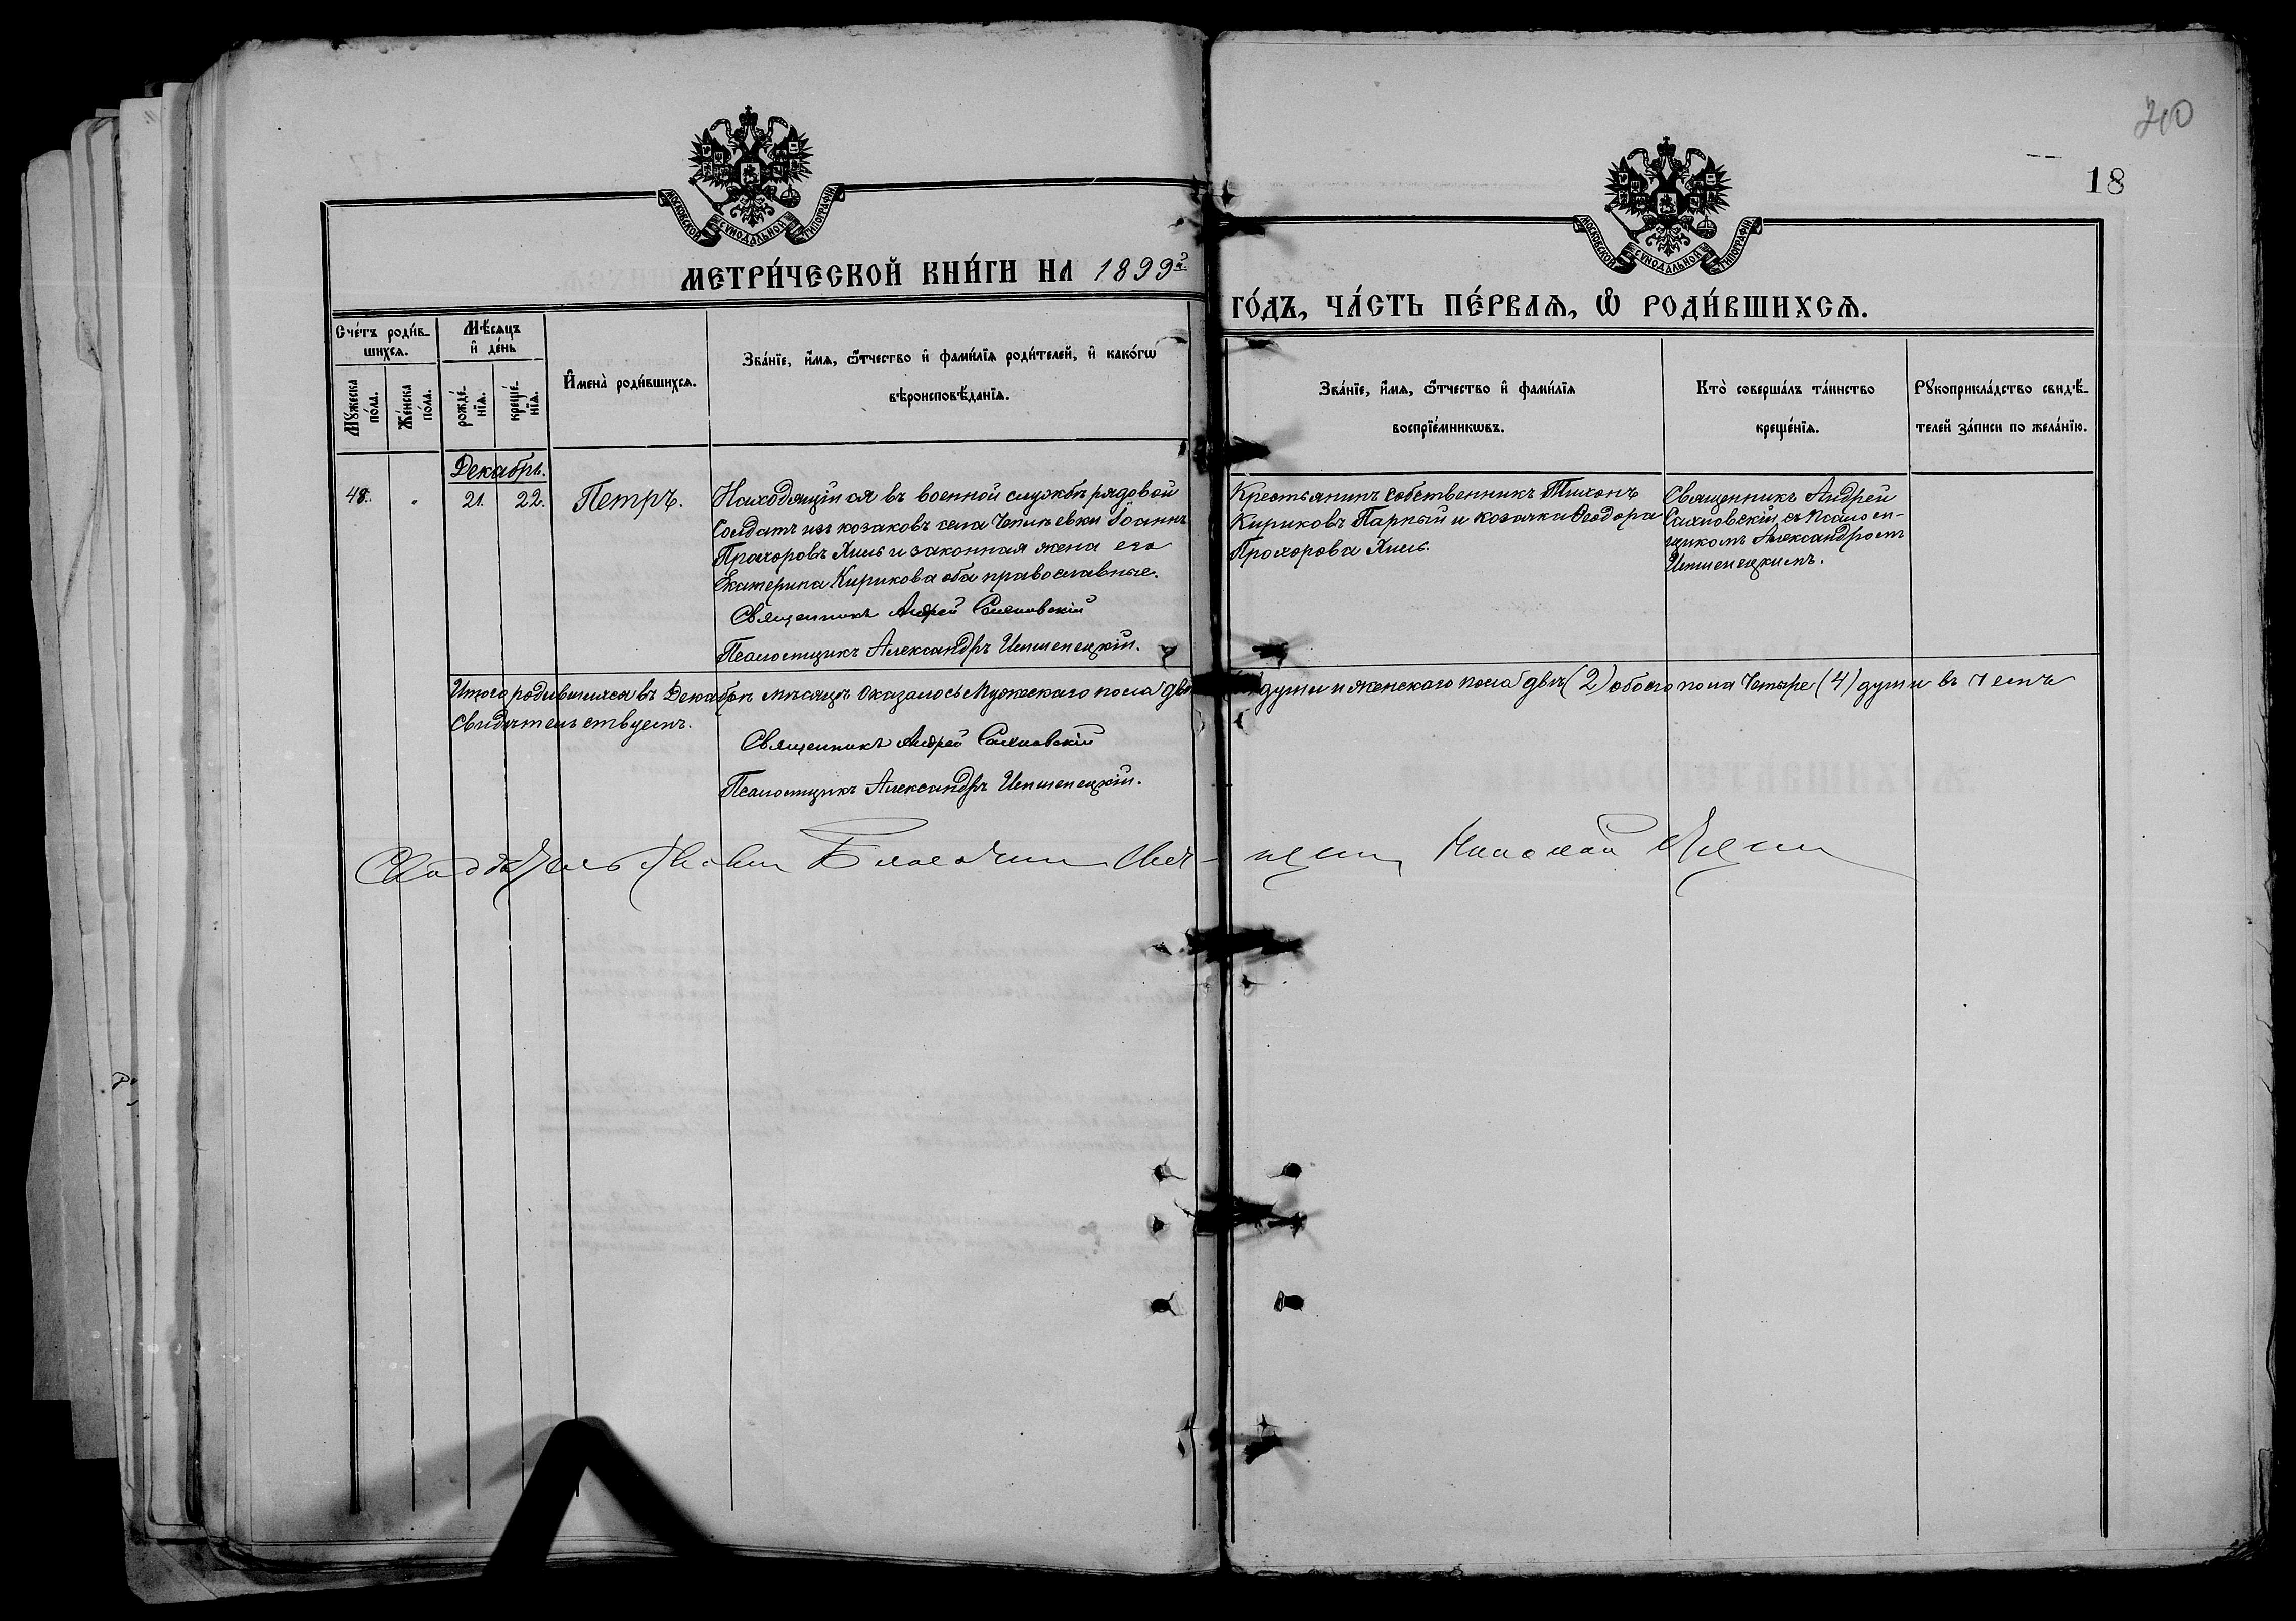 20
18
МОСКОВСКОЙ СѴНОДАЛЬНОЙ ТИПОГРАФІИ
МОСКОВСКОЙ СѴНОДАЛЬНОЙ ТИПОГРАФІИ
МЕТРИ́ЧЕСКОЙ КНИ́ГИ НА 1899й
ГО́ДЪ, ЧА́СТЬ ПЕ́РВАЯ, Ѡ РОДИ́ВШИХСЯ.
Сче́тъ роди́в-
шихся.
Мꙋжеска
по́ла.
Же́нска
по́ла.
Мѣ́сяцъ
и҆ де́нь
рожде́-
нїя.
креще́-
нїя.
И҆мена̀ роди́вшихся.
Зва́нїе, и҆́мя, ѻ҆́тчество и҆ фами́лїя роди́телей, и҆ како́гѡ
вѣроисповѣ́данїя.
Зва́нїе, и҆́мя, ѻ҆́тчество и҆ фами́лїя
воспрїе́мникѡвъ.
Кто̀ соверша́лъ та́инство
креще́нїя.
Рꙋкоприкла́дство свидѣ́-
телей за́писи по жела́нїю.
Декабрь.
48. " 21. 22. Петръ.
Находящійся въ военной службѣ рядовой
Солдатъ изъ козаковъ села Чепиевки Іоаннъ
Прохоровъ Хиль и законная жена его
Екатерина Кирикова оба православные.
Священникъ Андрей Сахновскій
Псаломщикъ Александръ
Крестьянинъ собственникъ Тихонъ
Кириковъ Парный и козачка Ѳеодора
Прохорова Хиль.
Священникъ Андрей
Сахновскій съ Псалом-
щикомъ Александромъ
Итого родившихся въ Декабрѣ мѣсяцѣ оказалось Мужескаго пола двѣ души и женскаго пола двѣ (2) обоего пола Четыре (4) души въ чемъ
свидѣтельствуемъ.
Священникъ Андрей Сахновскій
Псаломщикъ Александръ
Николай